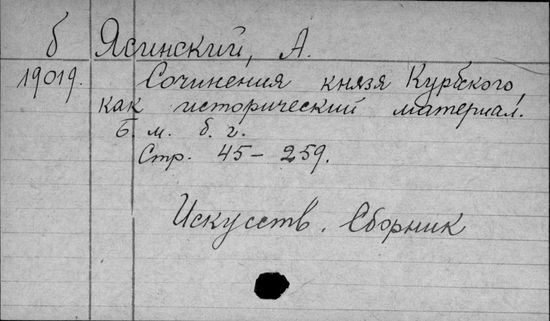 б Ясинский, А.
19019. Сочинения князя Курбского,
как исторический материал.
Б. м. б. г.
Стр. 45-259.
Искусств. Сборник